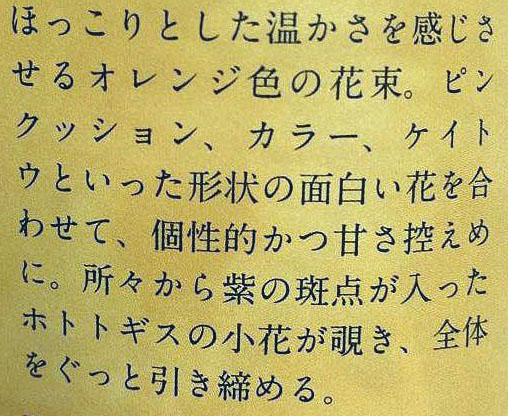 ほっこりとした温かさを感じさ
せるオレンジ色の花束。ピン
クッション、カラー、ケイト
ウといった形状の面白い花を合
わせて、個性的かつ甘さ控えめ
に。所々から紫の斑点が入った
ホトトギスの小花が覗き、全体
をぐっと引き締める。